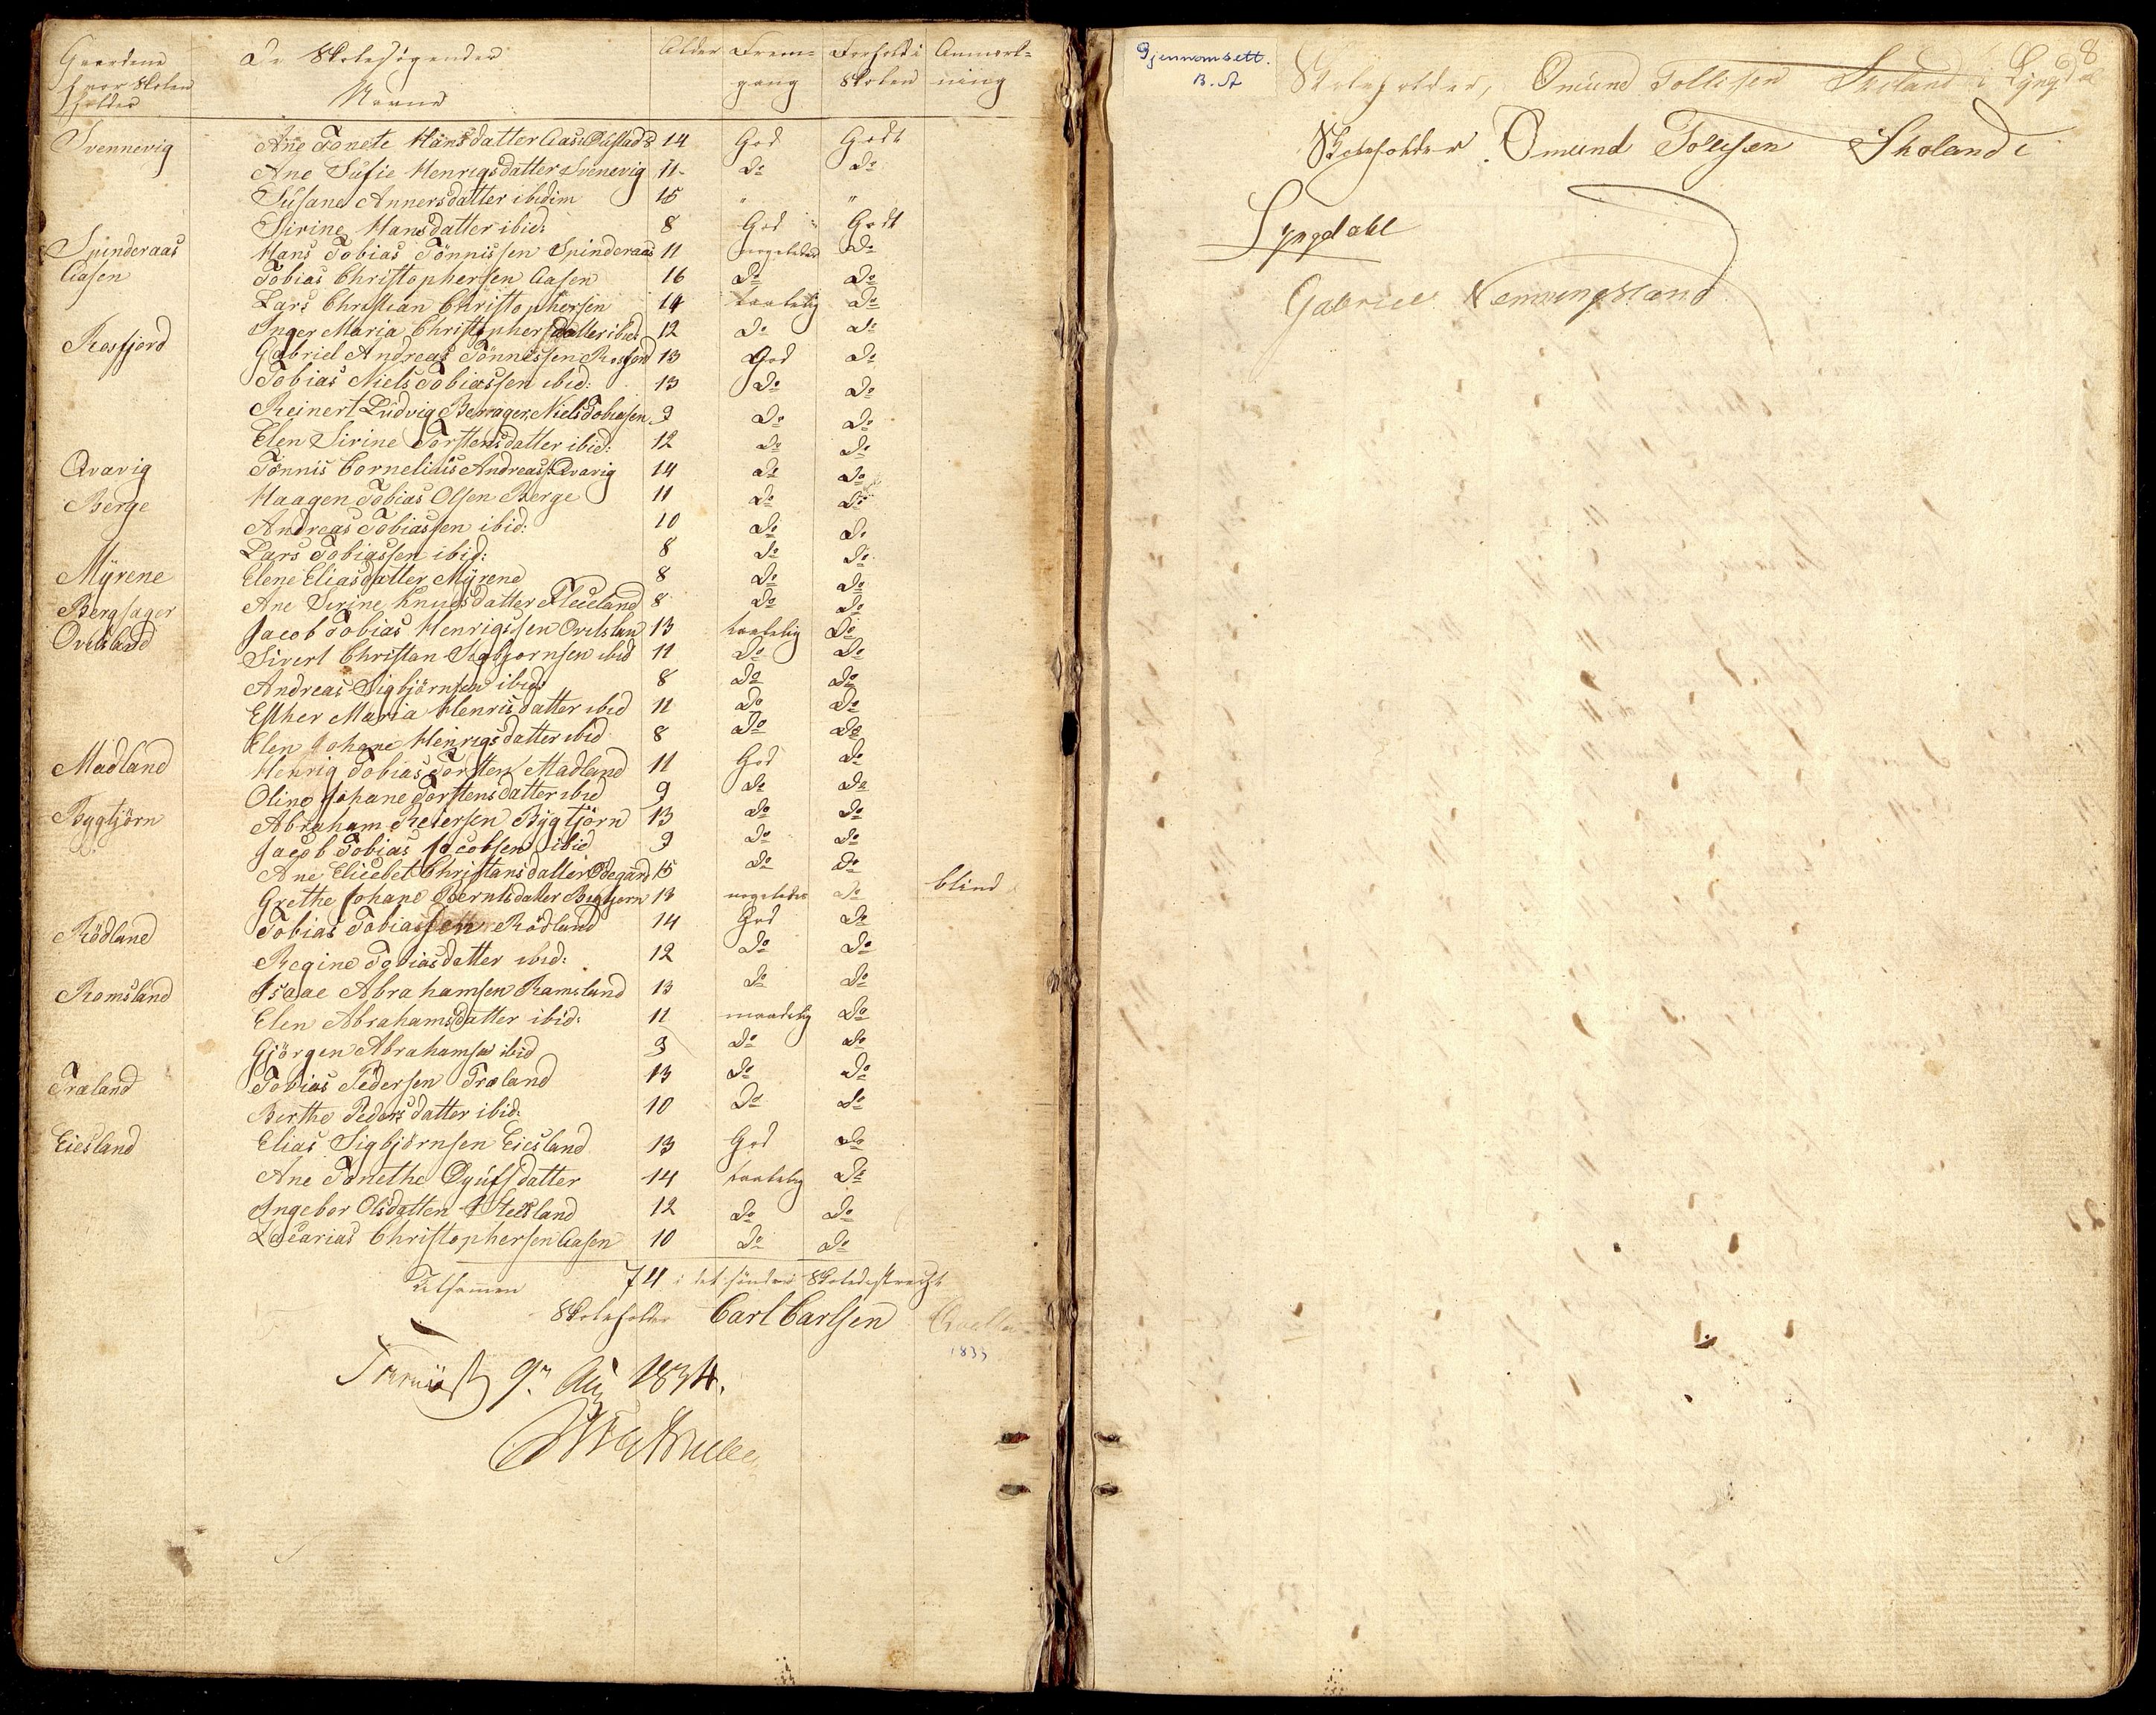 Gaardene hvor Skolen holdes | De Skolesøgendes Navne | Alder | Fremgang | Forhold i Skolen | Anmærkning
Svennevig | Ane Tonete Hansdatter | 14 | God | Godt
Ane Sufie Henrigsdatter Svenevig | 11 | Do | Do
Susane Annersdatter ibidim | 15 | " | "
Sirine Hansdatter ibid: | 8 | God | Godt
Spinderaas | Hans Tobias Tönnissen Spinderaas | 11 | nogeledes | Do
Aasen | Tobias Christophersen Aasen | 16 | Do | Do
Lars Christian Christophersen | 14 | taalelig | Do
Inger Maria Christophersdatter ibid | 12 | Do | Do
Rosfjord | Gabriel Andreas Tönnessen Rosfjord | 13 | God | Do
Tobias Niels Tobiassen ibid: | 13 | Do | Do
Reinert Ludvig Nielsdobiasen | 9 | Do | Do
Elen Sirine Torstensdatter ibid: | 12 | Do | Do
Qvavig | Tönnis Cornelius Andreass: Qvavig | 14 | Do | Do
Berge | Haagen Tobias Olsen Berge | 11 | Do | Do
Andreas Tobiassen ibid: | 10 | Do | Do
Lars Tobiassen ibid: | 8 | Do | Do
Myrene | Elene Eliasdatter Myrene | 8 | Do | Do
Bergsager | Ane Serine Knudsdatter | 8 | Do | Do
Ovelsland | Jacob Tobias Henrigssen Ovelslan | 13 | taalelig | Do
Sivert Christan Sigbjornsen ibid | 11 | Do | Do
Andreas Sigbjörnsen ibid: | 8 | Do | Do
Esther Maria Henrisdatter ibid | 11 | Do | Do
Elen Johane Henrigsdatter ibid | 8 | Do | Do
Madland | Henrig Tobias Torsten Madland | 11 | God | Do
Oline Johane Torstensdatter ibid | 9 | Do | Do
Byggtjörn | Abraham Reiersen Bygtjörn | 13 | Do | Do
Jacob Tobias Jacobsen ibid | 9 | Do | Do
Ane Eliesbet Christansdatter Ödegaard | 15 | Do | Do
Grethe Johane Berntsdatter Bigtjorn | 13 | nogeledes | Do | blind
Rödland | Tobias Tobiassen Rödland | 14 | God | Do
Regine Tobiasdatter ibid: | 12 | Do | Do
Romsland | Isaac Abrahamsen Ramsland | 13 | Do | Do
Elen Abrahamsdatter ibid: | 11 | maadelig | Do
Gjörgen Abrahamsen ibid | 9 | Do | Do
Træland | Tobias Pedersen Træland | 13 | Do | Do
Berthe Pedersdatter ibid: | 10 | Do | Do
Eiesland | Elias Sigbjörnsen Eiesland | 13 | God | Do
Ane Tonethe datter | 14 | taalelig | Do
Ingebor Olsdatten | 12 | Do | Do
Zacarias Christophersen Aasen | 10 | Do | Do
Tilsammen 74 i det söndre Skoledistrict
Skoleholder Carl Carlsen
1833
9n Aug 1834.
8
Gjennomsett.
B. A
Skoleholder, Omund Tollisen Skoland i Lyngdal
Skoleholder Omund Tollisen Skoland i
Lyngdahl
Gabriel